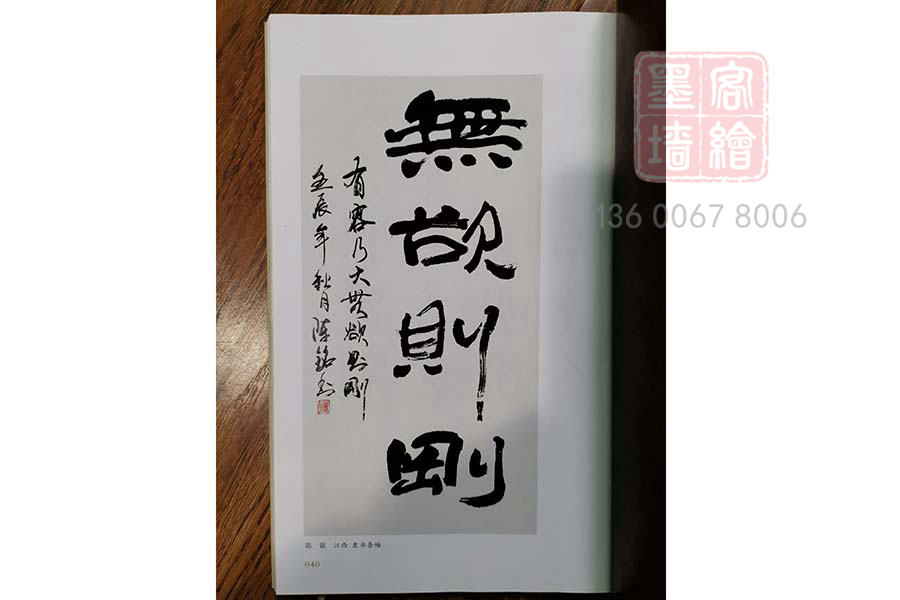 無欲則剛
有容乃大無欲則剛
壬辰年秋月陈铭书
陈 铭 江西 隶书条幅
040
墨客
墙繪
136 0067 8006